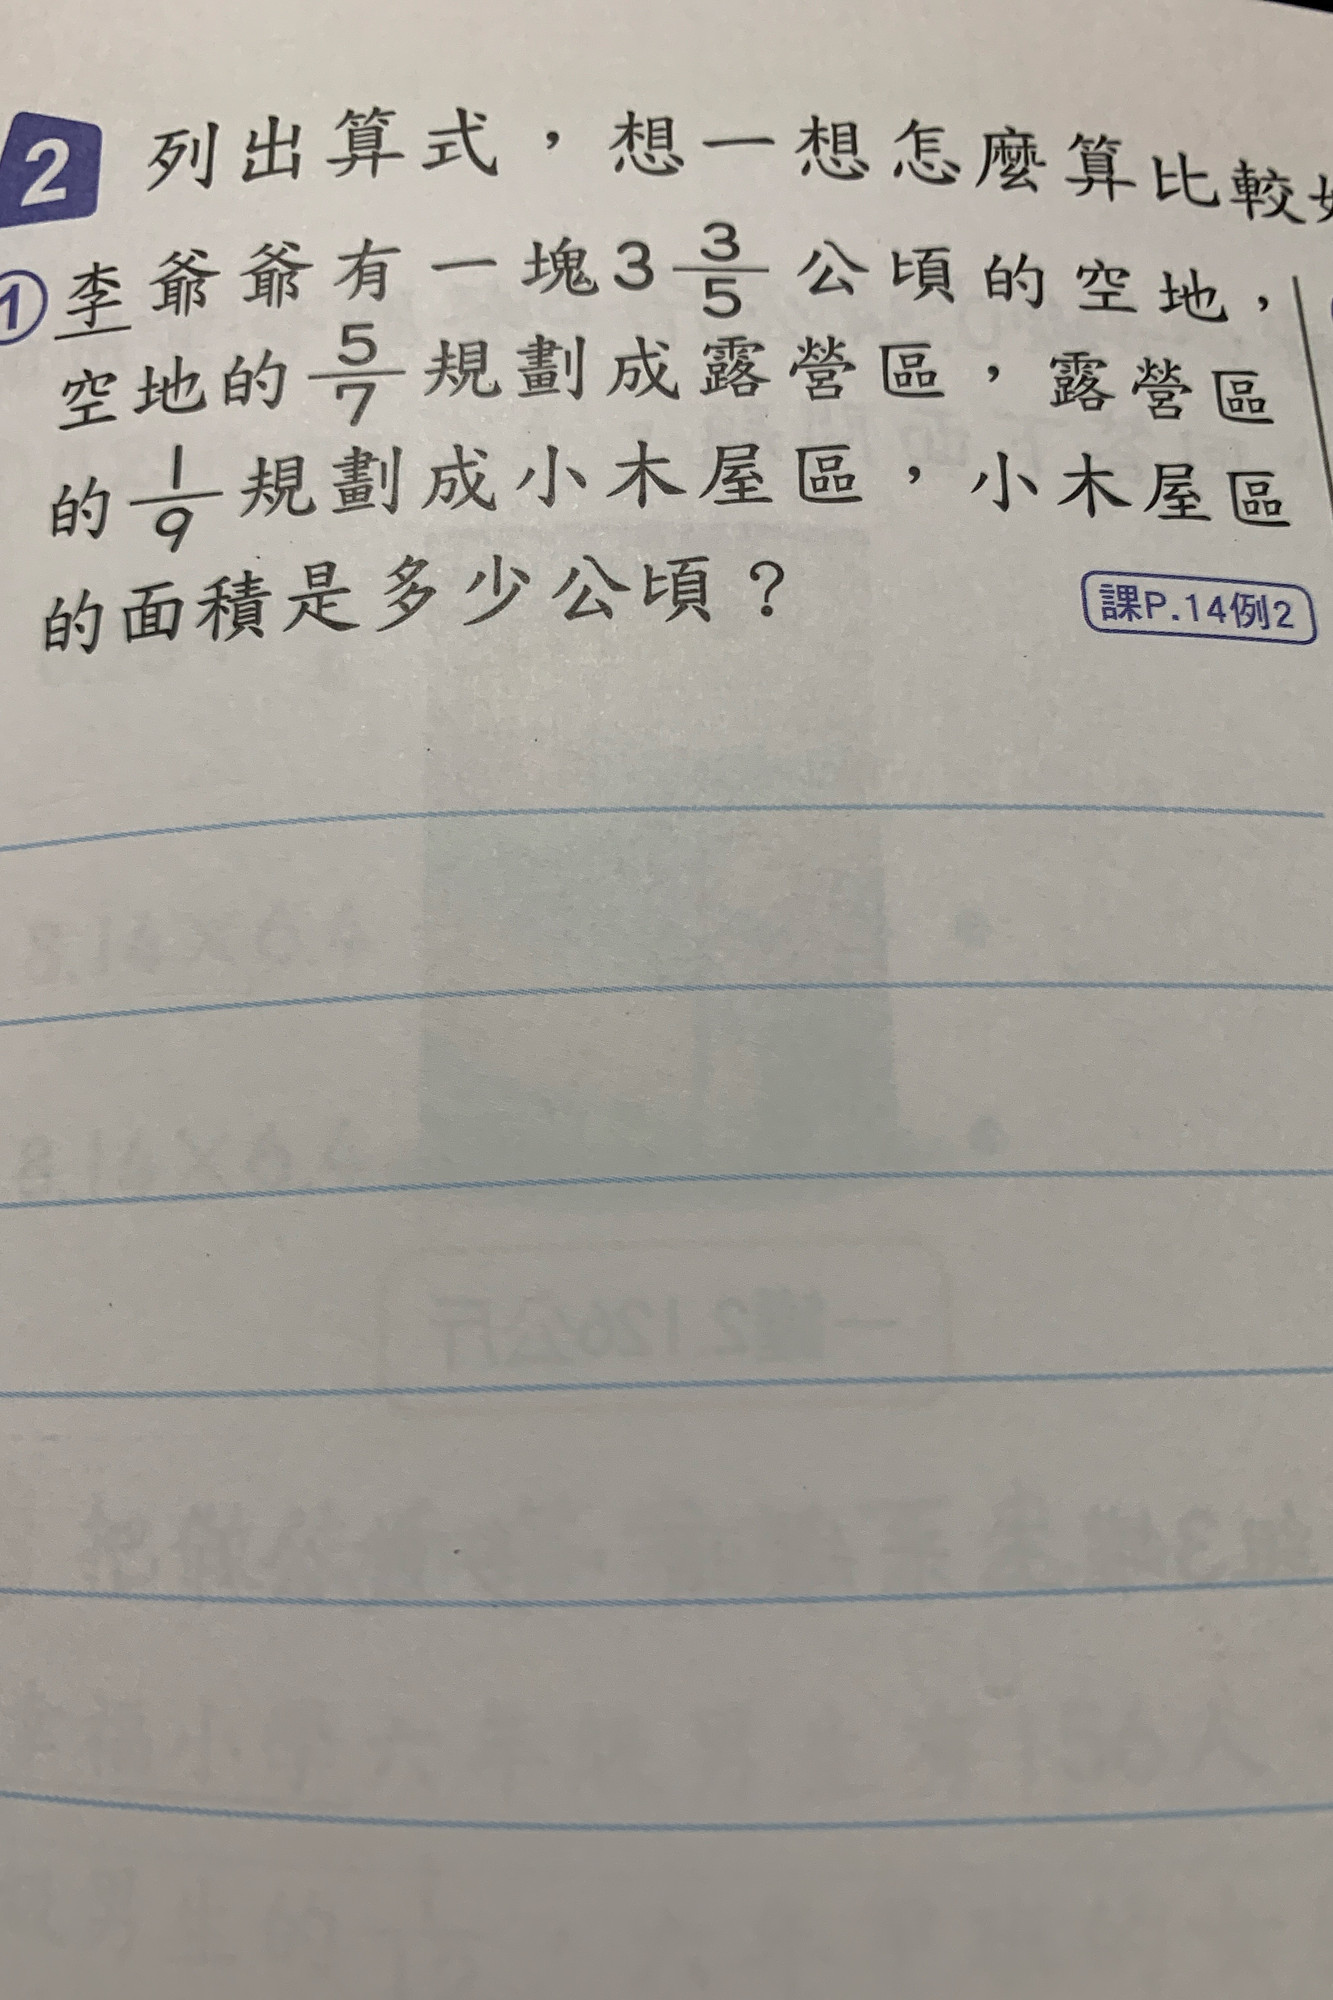 2 列出算式，想一想怎麼算比較
① 李爺爺有一塊3 3/5 公頃的空地，
空地的 5/7 規劃成露營區，露營區
的 1/9 規劃成小木屋區，小木屋區
的面積是多少公頃？
課P.14例2
8.14×6.4
8.14×6.4
一罐2.126公斤